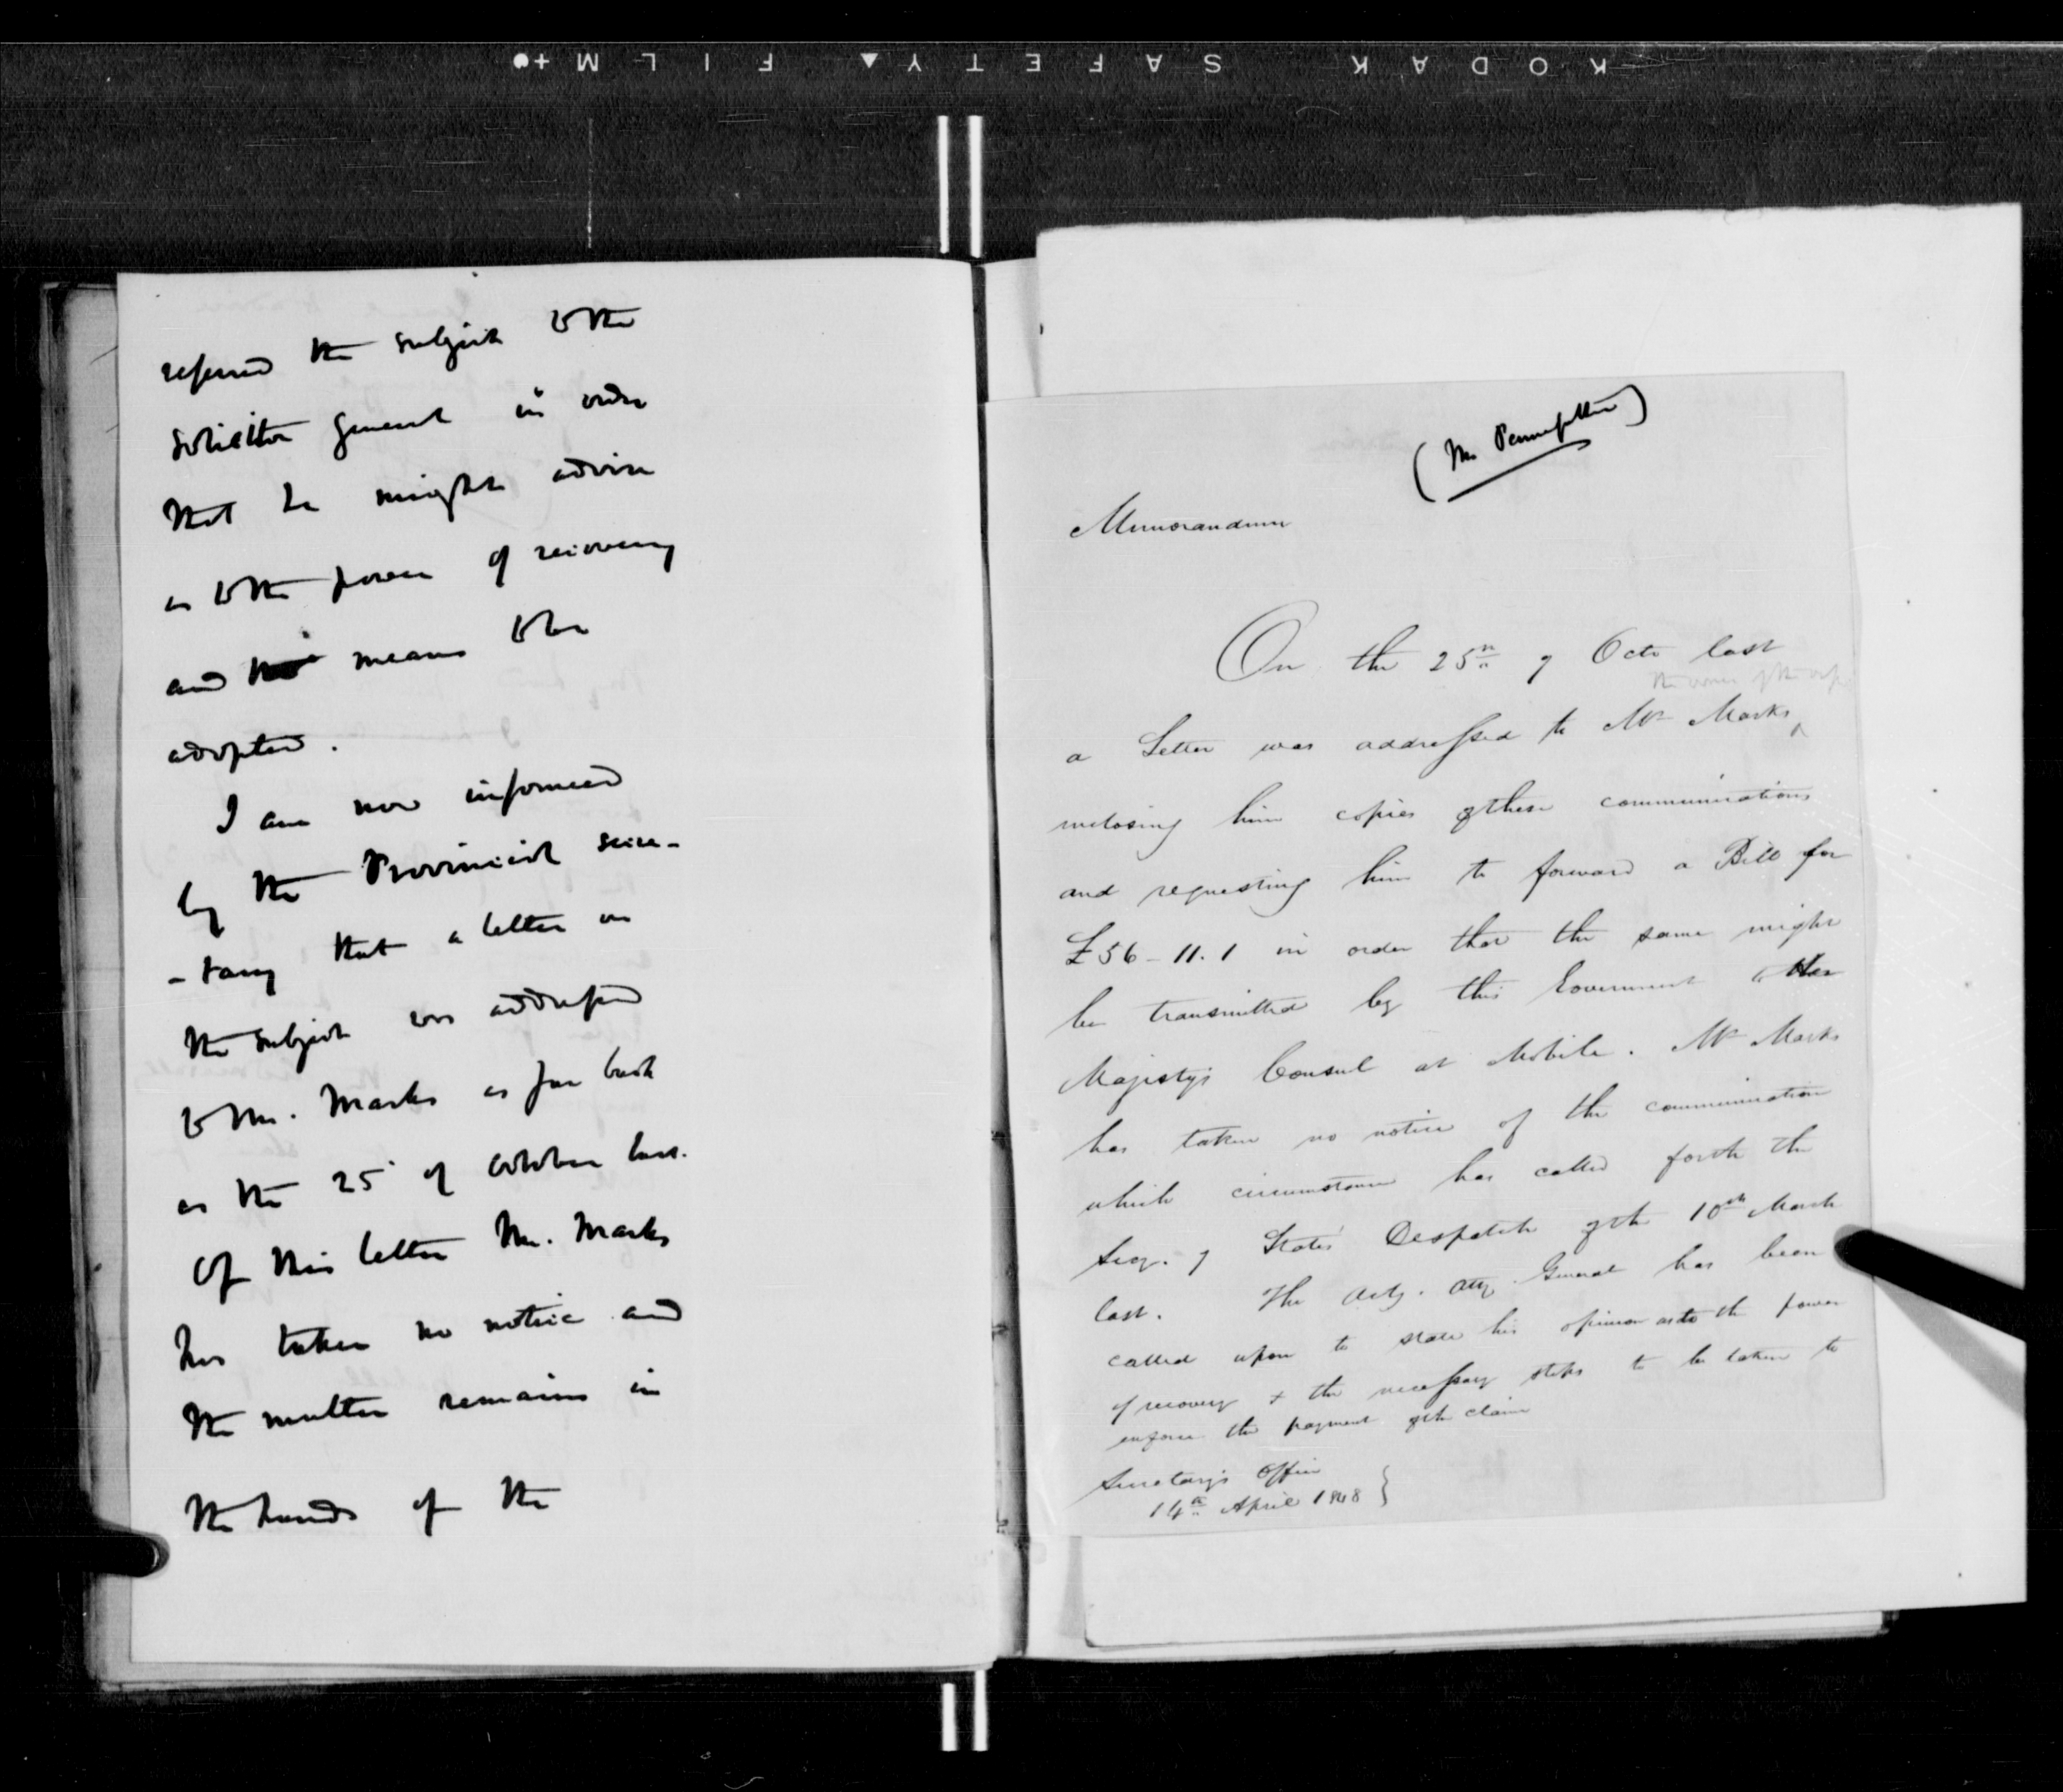 KODAK SAFETY FILM
referred the subject to the
Solicitor General in order
that he might advise
as to the power of recovery
and means to be
adopted.
I am now informed
by the Provincial Secre-
-tary that a letter on
the subject was addressed
to Mr. Marks as far back
as the 25 of October last.
Of this letter Mr. Marks
has taken no notice and
the matter remains in
the hands of the
(Mr. Pennefather)
Memorandum
On the 25th of Octr last
the owner of the
a Letter was addressed to Mr Marks
enclosing him copies of these communications
and requesting him to forward a Bill for
£56-11.1 in order that the same might
be transmitted by this Government to Her
Majesty's Consul at Mobile. Mr Marks
has taken no notice of the communication
which circumstance has called forth the
Secy. of State's Despatch of the 10th March
last. The Actg. Atty General has been
called upon to state his opinion as to the power
of recovery & the necessary steps to be taken to
enforce the payment of the claim
Secretary's Office
14th April 1848